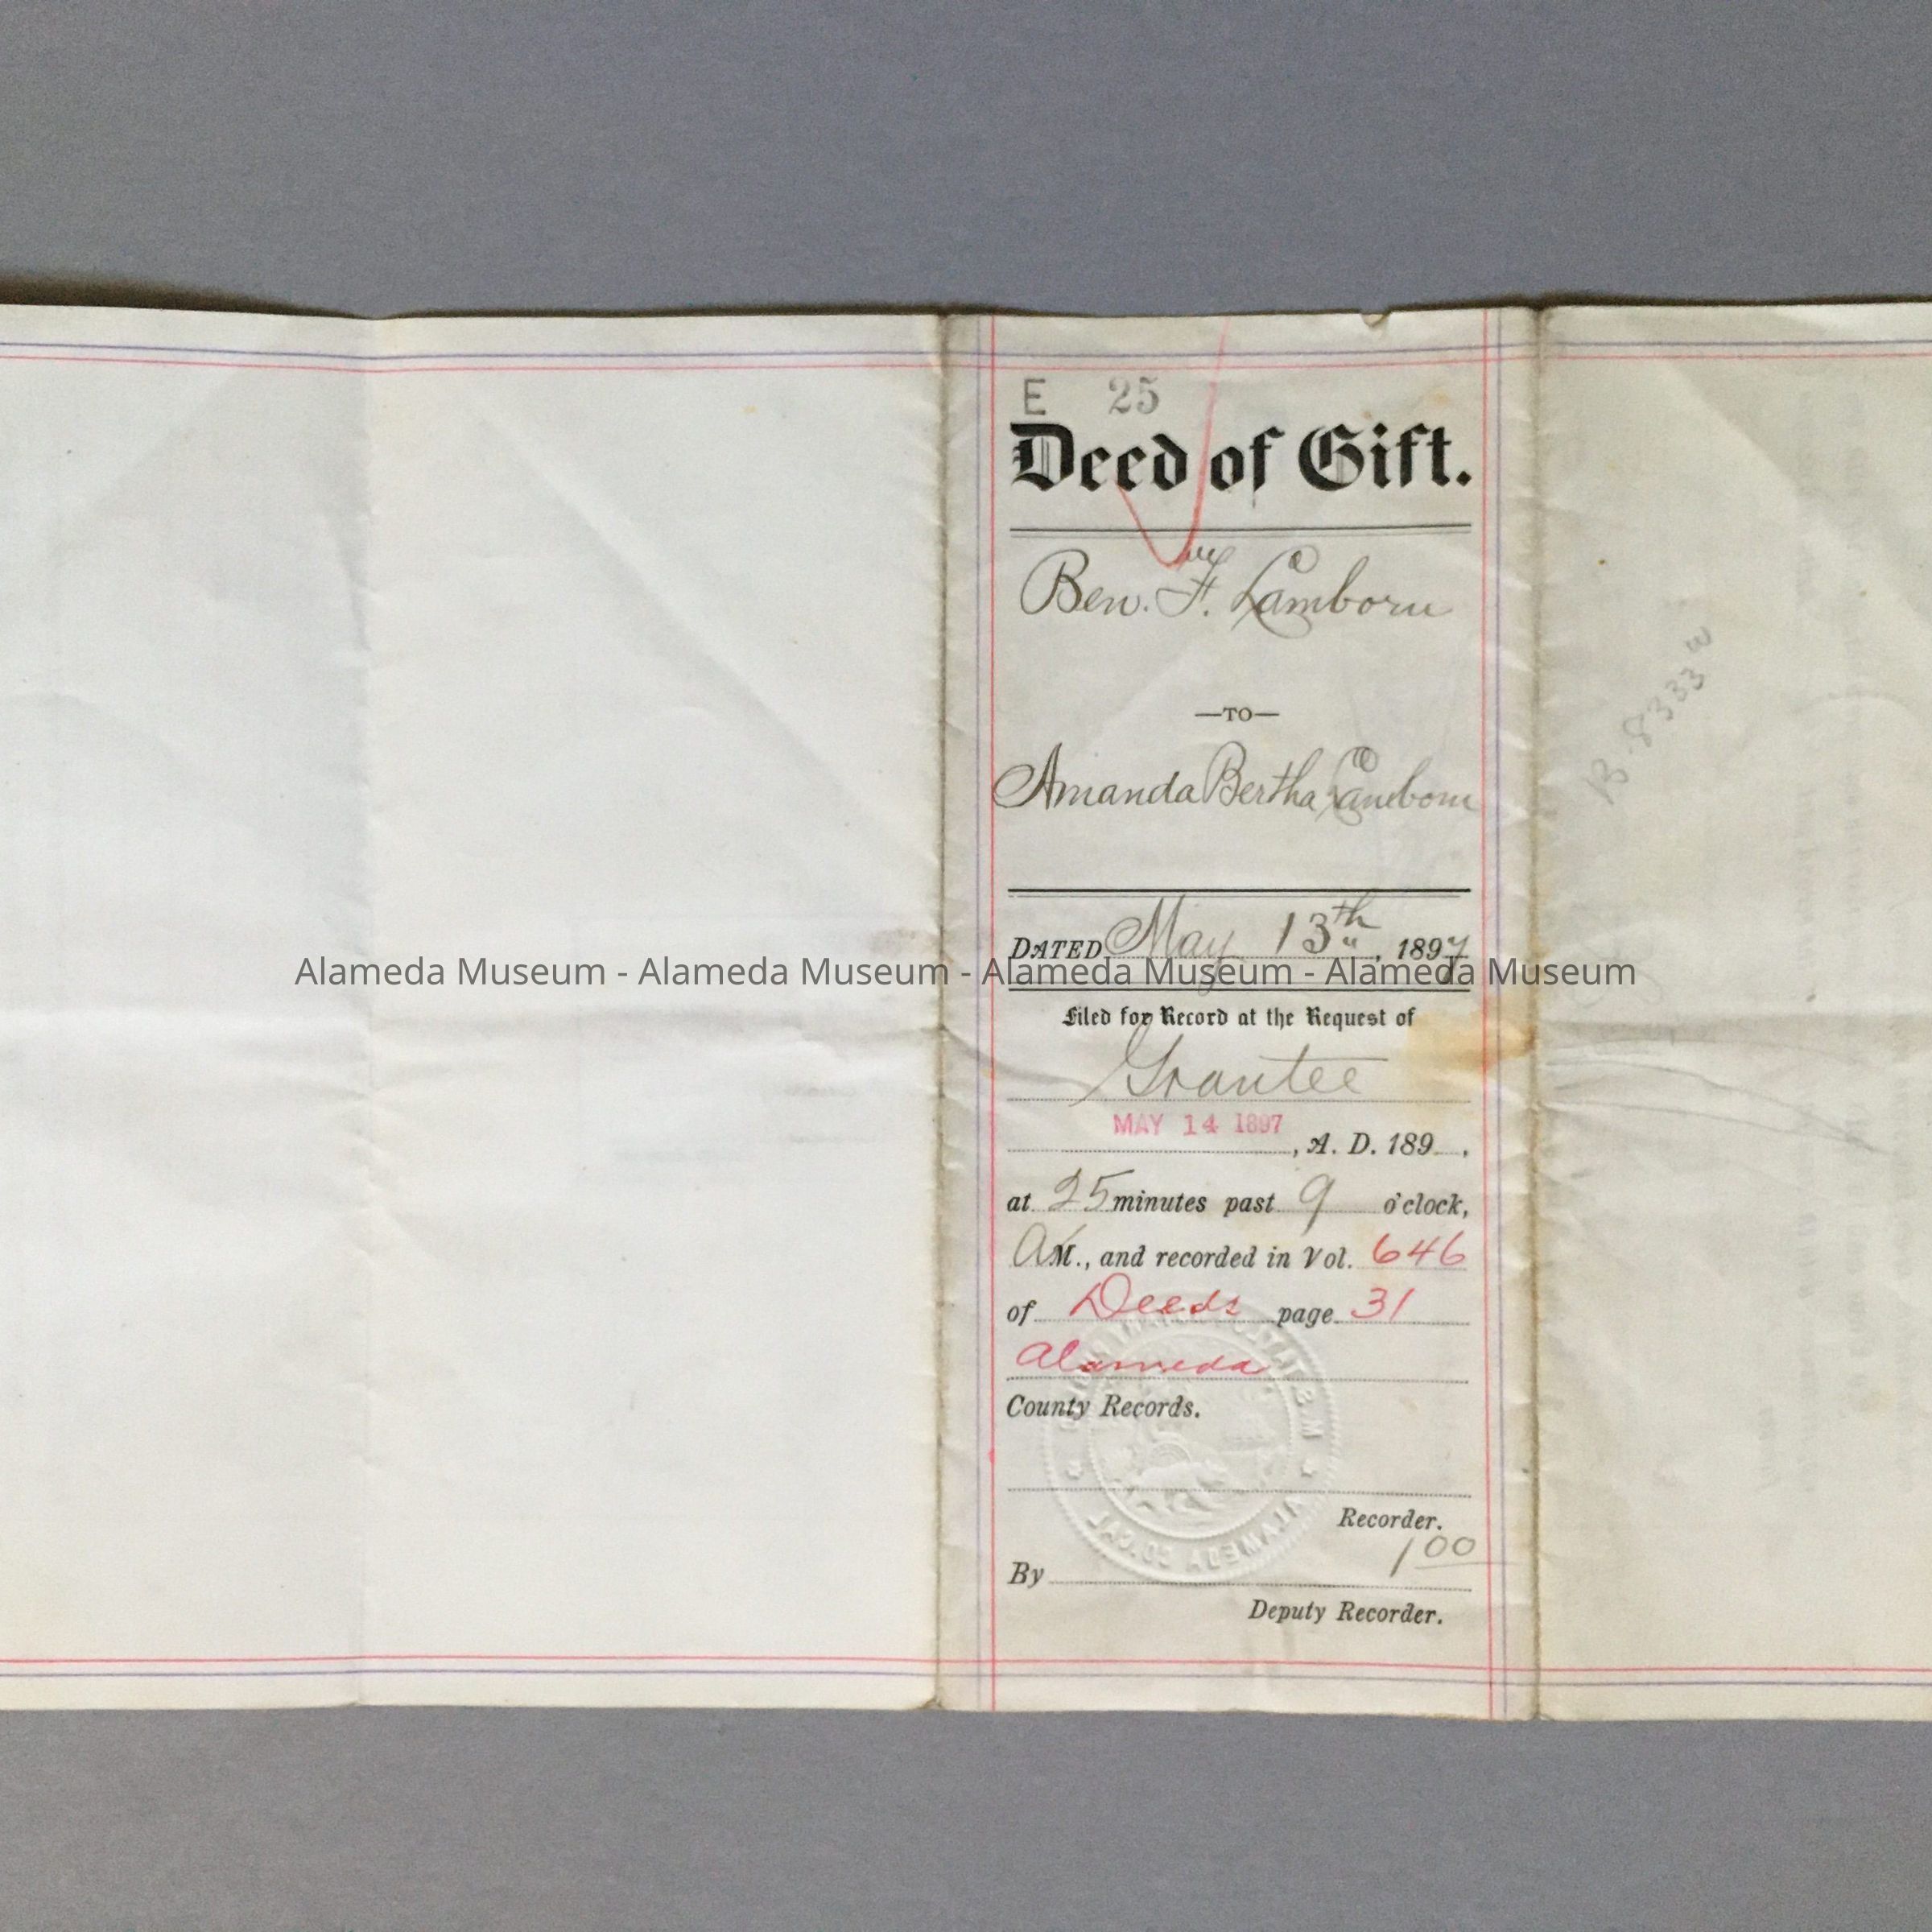 E 25
Deed of Gift.
Ben. F. Lamborn
—TO—
Amanda Bertha Lamborn
DATED May 13th, 1897
Alameda Museum - Alameda Museum - Alameda Museum - Alameda Museum
Filed for Record at the Request of
Grantee
MAY 14 1897
, A. D. 189 ,
at 25 minutes past 9 o'clock,
A M., and recorded in Vol. 646
of Deeds page 31
Alameda
County Records.
Recorder.
1 00
By
Deputy Recorder.
ALAMEDA CO. CAL.
B. 8333